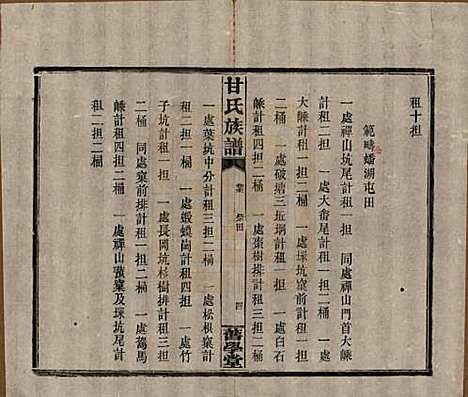 租十担
範疇蟠湖屯田
一處禪山坑尾計租一担　同處禪山門首大嵊
計租二担　一處大番尾計租一担　一處垜坑窠前一担
二桶　一處破塘三坵垌計租二担二桶　一處白石
嵊計租三担二桶　一處棗樹排計租三担二桶
甘氏族譜
祭田
四
舊學堂
一處葉坑中分計租三担二桶　一處松根窠計
租一担二桶　一處蝦蟆崗計租四担　一處竹
子坑計租一担　一處長岡坑杉樹排計租三担
二桶　同處窠前排計租一担二桶　一處蔫馬
嵊計租四担二桶　一處禪山張窠及垜坑尾計
租二担二桶